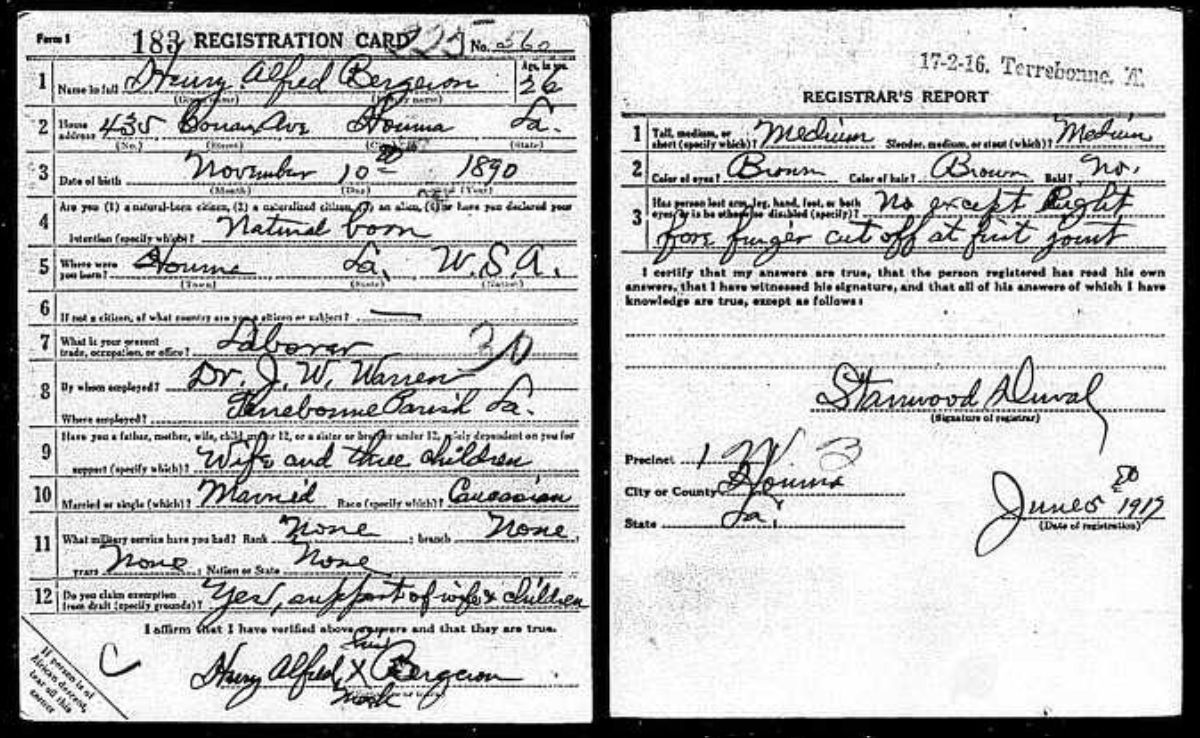 Form 1 183 REGISTRATION CARD 223 No. 560
1 Name in full Henry Alfred Bergeron Age, in yrs. 26
(Given name) (Family name)
2 Home address 435 Ave Houma La.
(No.) (Street) (City) (State)
3 Date of birth November 10th 1890
(Month) (Day) (Year)
4 Are you (1) a natural-born citizen, (2) a naturalized citizen, (3) an alien, (4) or have you declared your
intention (specify which)? Natural born
5 Where were you born? Houma La. U.S.A.
(Town) (State) (Nation)
6 If not a citizen, of what country are you a citizen or subject? —
7 What is your present trade, occupation, or office? Laborer 30
8 By whom employed? Dr. J. W. Warren
Where employed? Terrebonne Parish La.
9 Have you a father, mother, wife, child under 12, or a sister or brother under 12, solely dependent on you for
support (specify which)? Wife and three children
10 Married or single (which)? Married Race (specify which)? Caucasian
11 What military service have you had? Rank None ; branch None ;
years None ; Nation or State None
12 Do you claim exemption from draft (specify grounds)? Yes, support of wife & children
I affirm that I have verified above answers and that they are true.
his
Henry Alfred X Bergeron
mark
C
If person is of
African descent,
tear off this
corner
17-2-16. Terrebonne. A.
REGISTRAR'S REPORT
1 Tall, medium, or short (specify which)? Medium Slender, medium, or stout (which)? Medium
2 Color of eyes? Brown Color of hair? Brown Bald? No.
3 Has person lost arm, leg, hand, foot, or both eyes, or is he otherwise disabled (specify)? No except Right
fore finger cut off at first joint
I certify that my answers are true, that the person registered has read his own
answers, that I have witnessed his signature, and that all of his answers of which I have
knowledge are true, except as follows:
Stanwood Duval
(Signature of registrar)
Precinct 1 W 3
City or County Houma
State La.
June 5th 1917
(Date of registration)